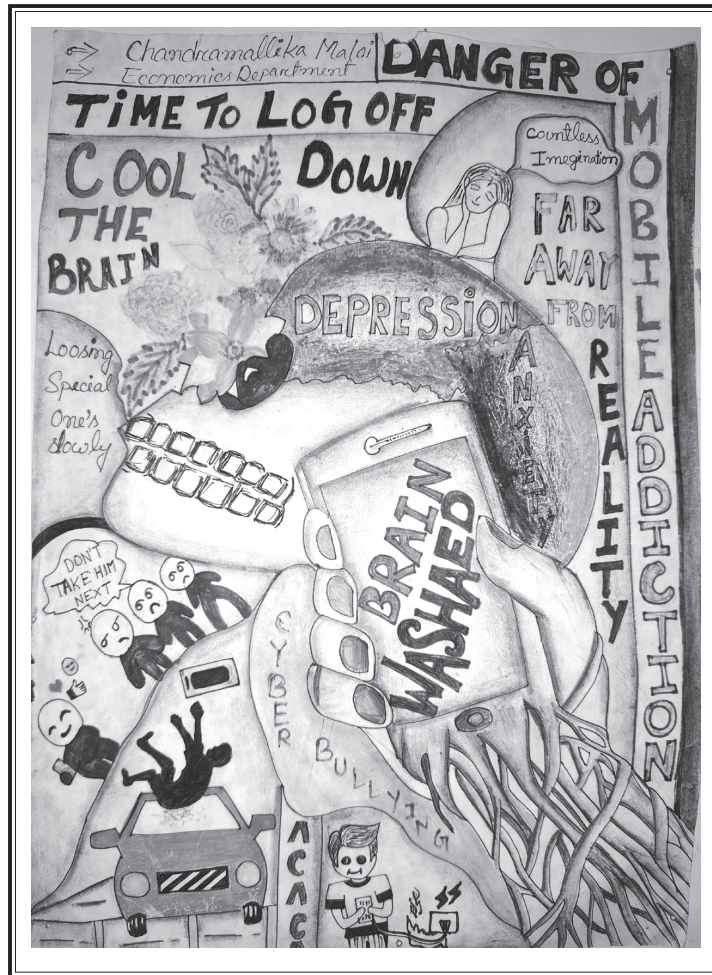 Chandramallika Maloi
Economics Department
DANGER OF
MOBILE ADDICTION
TiME TO LOG OFF
COOL DOWN
THE
BRAIN
Countless
Imegination
FAR
AWAY
FROM
REALITY
DEPRESSION
ANXIETY
Loosing
Special
One's
slowly
BRAIN
WASHAED
DON'T
TAKE HIM
NEXT
CYBER
BULLYING
ACACA